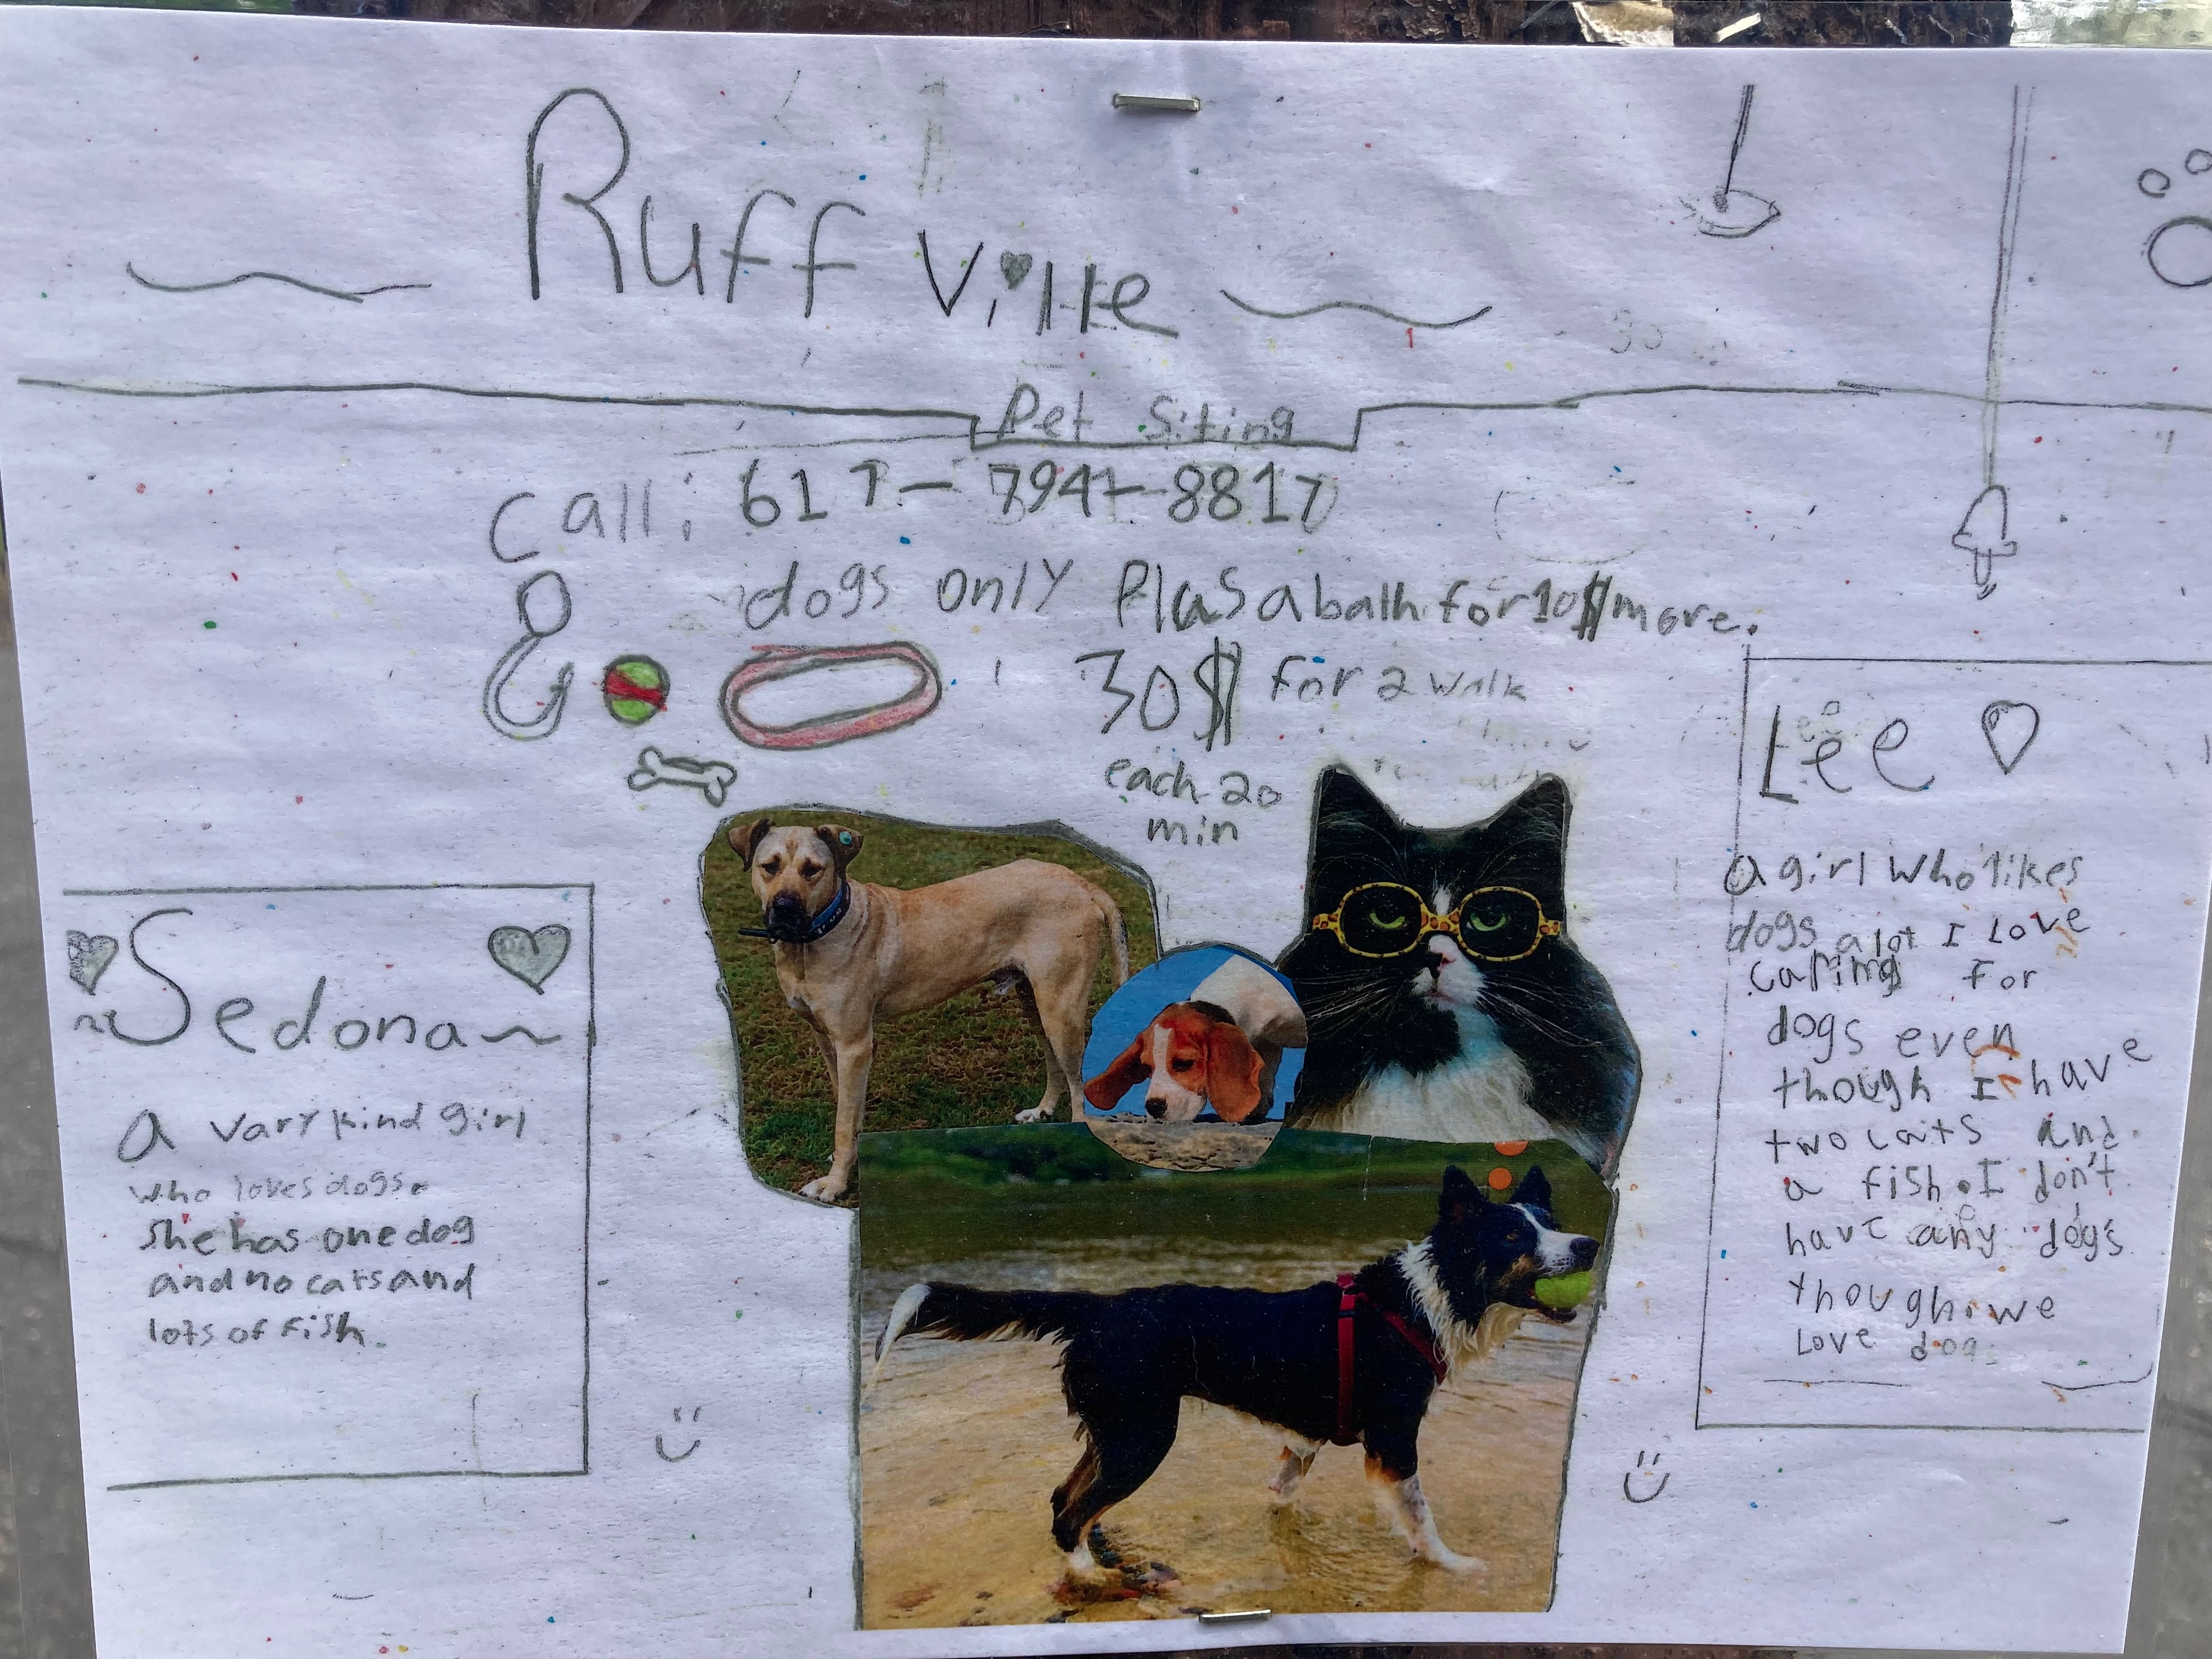 Ruff ville
Pet Siting
call: 617-794-8817
dogs only Plus a bath for 10$ more.
30$ for 2 walk
each 20
min
Sedona
a vary kind girl
who loves dogs.
She has one dog
and no cats and
lots of fish.
Lee
a girl who likes
dogs alot I Love
caring for
dogs even
though I have
two cats and
a fish. I don't
have any dogs
though. we
Love dog